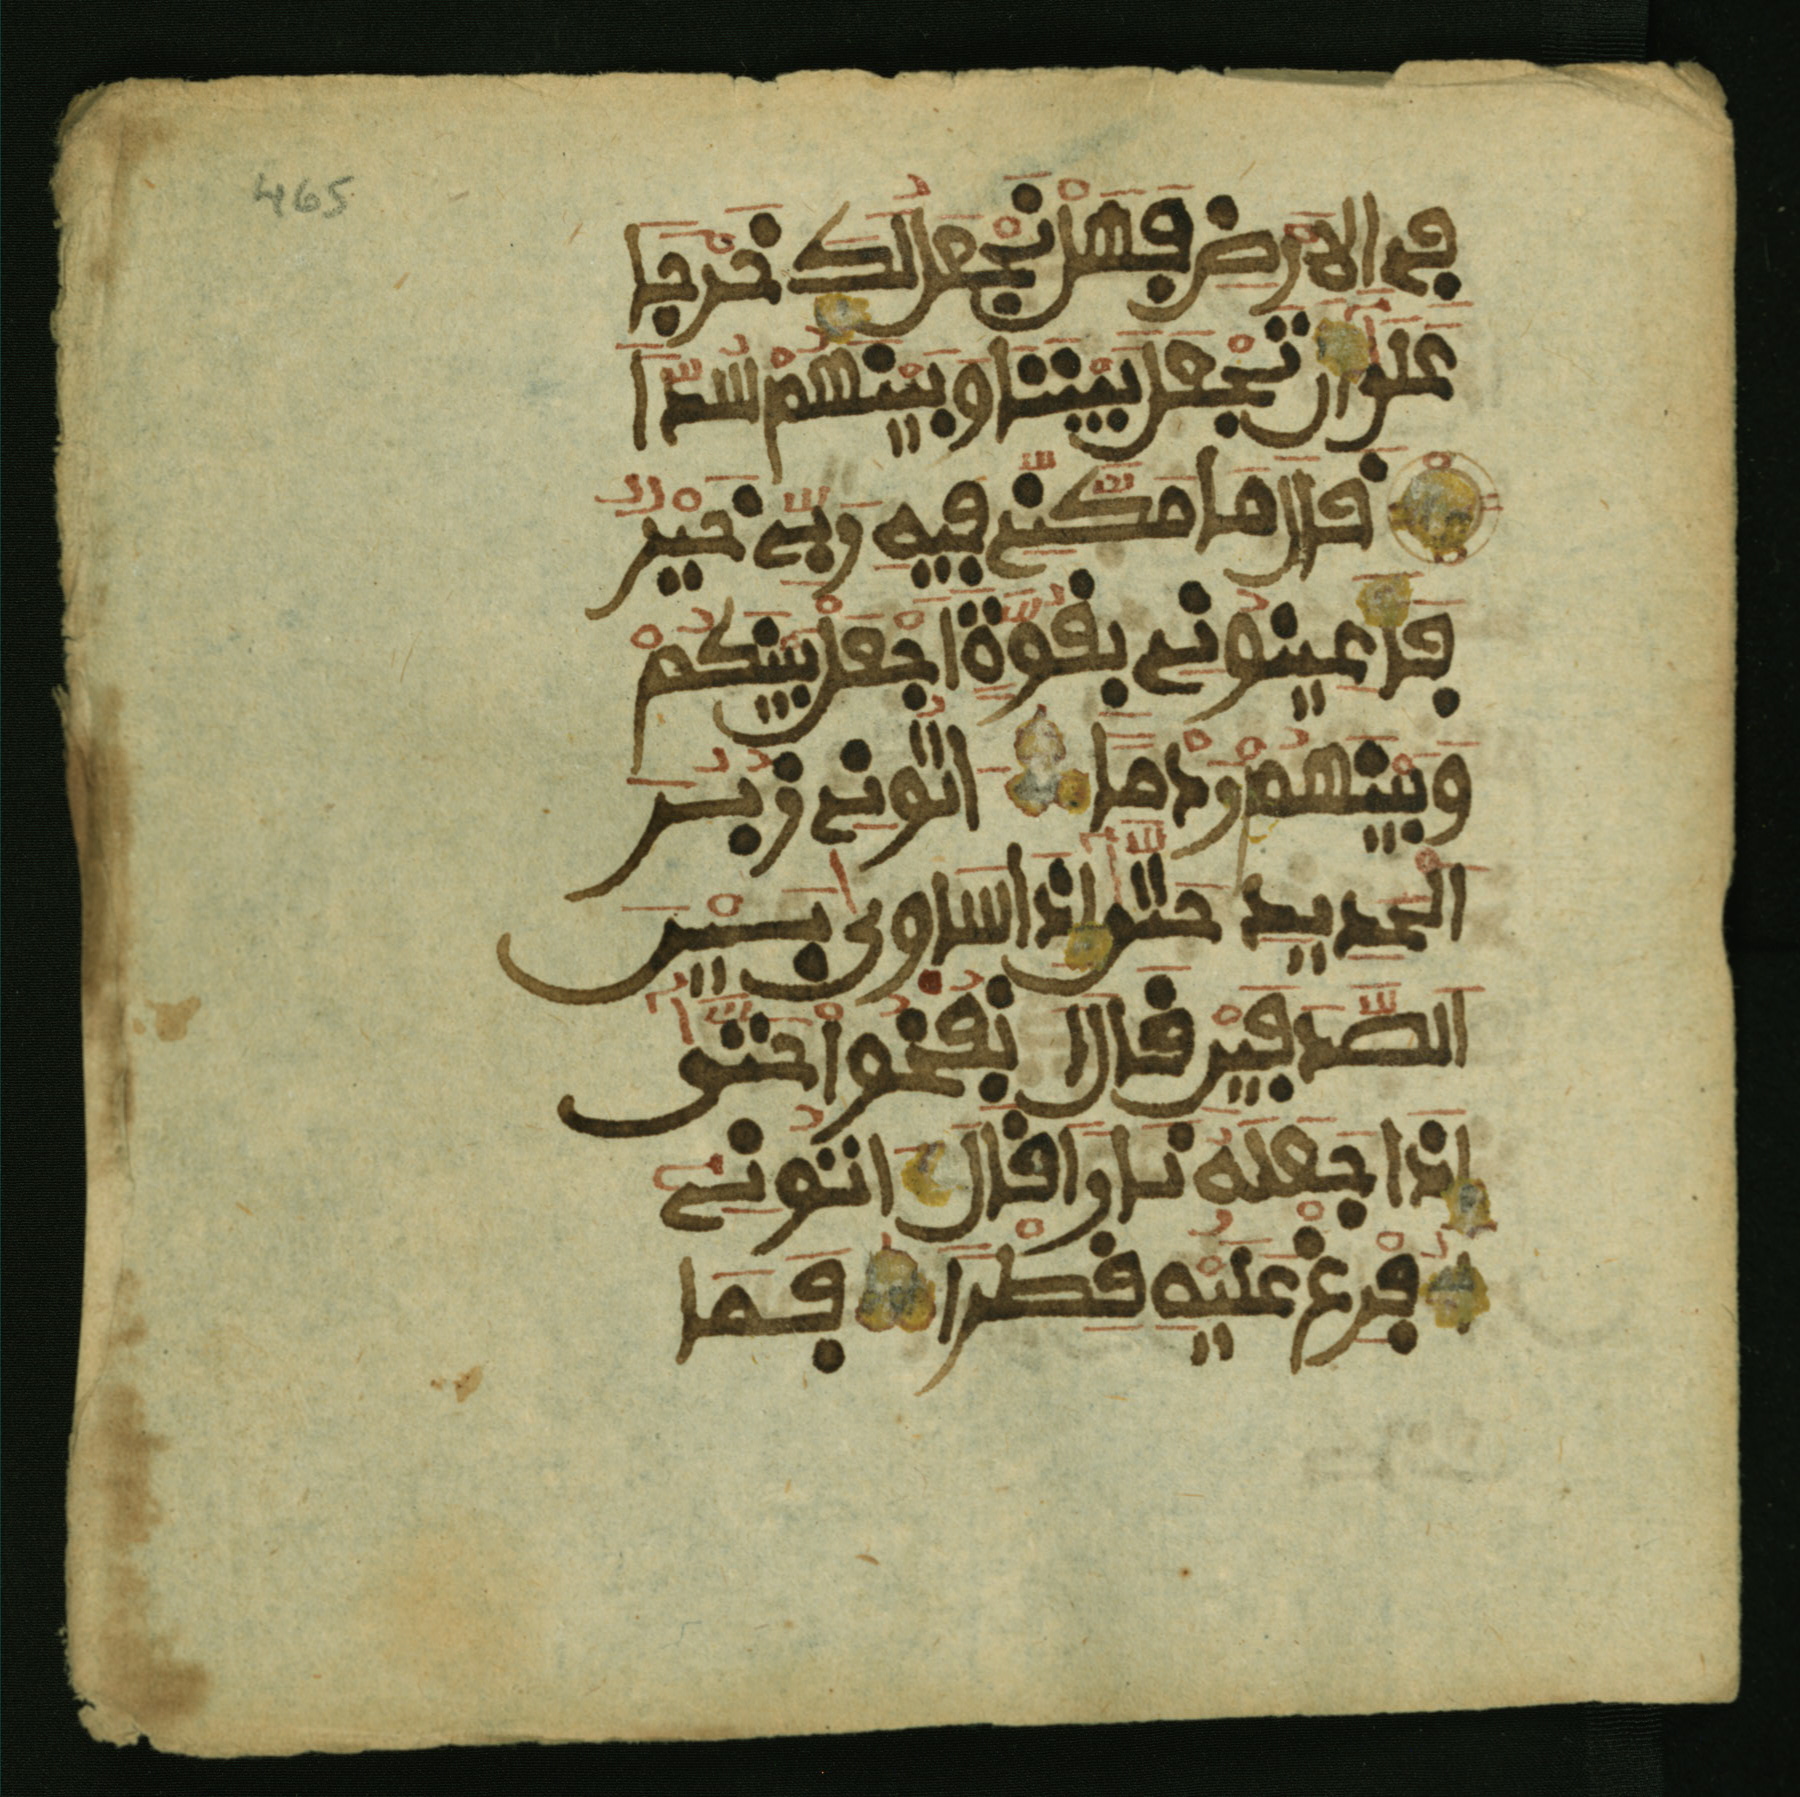 465
في الارض فهل نجعل لك خرجا
على ان تجعل بيننا وبينهم سدا
قال ما مكني فيه ربي خير
فاعينوني بقوة اجعل بينكم
وبينهم ردما اتوني زبر
الحديد حتى اذا ساوى بين
الصدفين قال انفخوا حتى
اذا جعله نارا قال اتوني
افرغ عليه قطرا فما